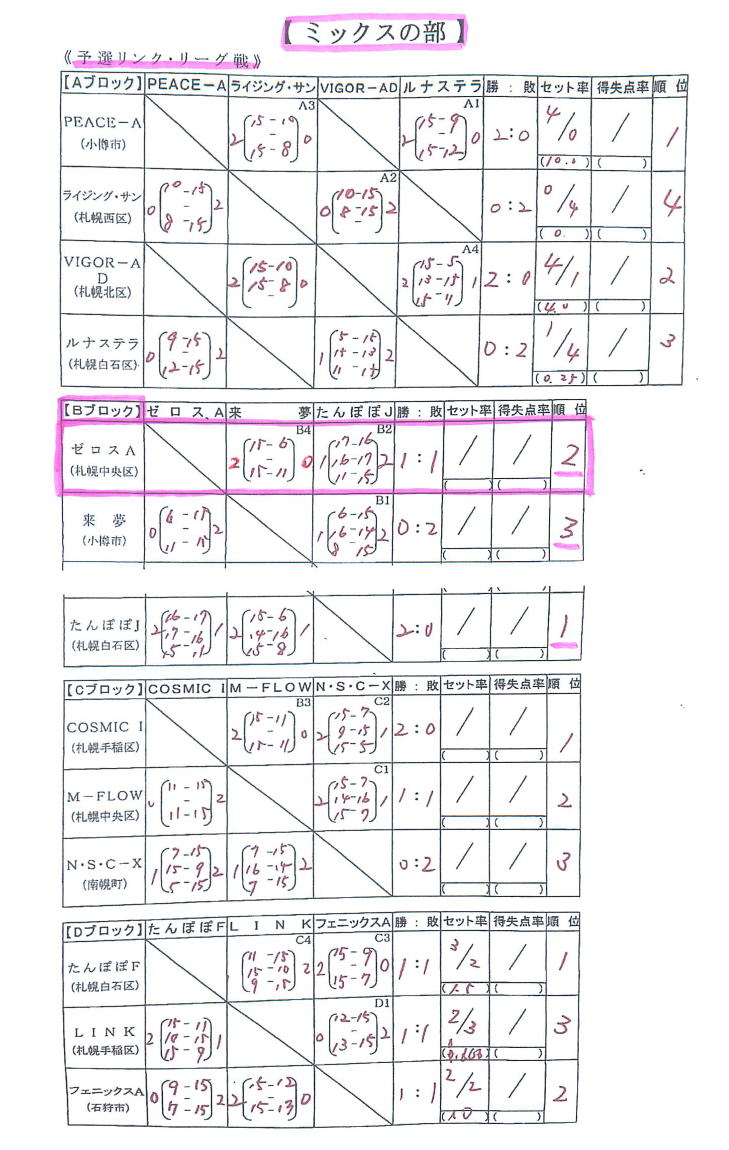 【ミックスの部】
《予選リンク・リーグ戦》
【Aブロック】 PEACE－A ライジング・サン VIGOR－AD ルナステラ 勝：敗 セット率 得失点率 順位
A3 A1
PEACE－A 2 (15-10 - 15-8) 0 2 (15-9 - 15-12) 0 2:0 4/0 / 1
(小樽市) (10.0) ( )
A2
ライジング・サン 0 (10-15 - 8-15) 2 0 (10-15 8-15 -) 2 0:2 0/4 / 4
(札幌西区) (0. ) ( )
A4
VIGOR－A D 2 (15-10 15-8 -) 0 2 (15-5 13-15 15-11) 1 2:0 4/1 / 2
(札幌北区) (4.0) ( )
ルナステラ 0 (9-15 - 12-15) 2 1 (5-15 15-13 11-15) 2 0:2 1/4 / 3
(札幌白石区) (0.25) ( )
【Bブロック】 ゼロス．A 来夢 たんぽぽJ 勝：敗 セット率 得失点率 順位
B4 B2
ゼロスA 2 (15-6 - 15-11) 0 1 (17-16 16-17 11-15) 2 1:1 / / 2
(札幌中央区) ( ) ( )
B1
来夢 0 (6-15 - 11-15) 2 1 (6-15 16-14 8-15) 2 0:2 / / 3
(小樽市) ( ) ( )
たんぽぽJ 2 (16-17 17-16 15-11) 1 2 (15-6 14-16 15-8) 1 2:0 / / 1
(札幌白石区) ( ) ( )
【Cブロック】 COSMIC I M－FLOW N・S・C－X 勝：敗 セット率 得失点率 順位
B3 C2
COSMIC I 2 (15-11 - 15-11) 0 2 (15-7 9-15 15-5) 1 2:0 / / 1
(札幌手稲区) ( ) ( )
C1
M－FLOW 0 (11-15 - 11-15) 2 2 (15-7 14-16 15-7) 1 1:1 / / 2
(札幌中央区) ( ) ( )
N・S・C－X 1 (7-15 15-9 5-15) 2 1 (7-15 16-14 7-15) 2 0:2 / / 3
(南幌町) ( ) ( )
【Dブロック】 たんぽぽF LINK フェニックスA 勝：敗 セット率 得失点率 順位
C4 C3
たんぽぽF (11-15 15-10 9-15) 2 2 (15-9 - 15-7) 0 1:1 3/2 / 1
(札幌白石区) (1.5) ( )
D1
LINK 2 (15-11 10-15 15-9) 1 0 (12-15 - 13-15) 2 1:1 2/3 / 3
(札幌手稲区) (0.666) ( )
フェニックスA 0 (9-15 - 7-15) 2 2 (15-12 - 15-13) 0 1:1 2/2 / 2
(石狩市) (1.0) ( )